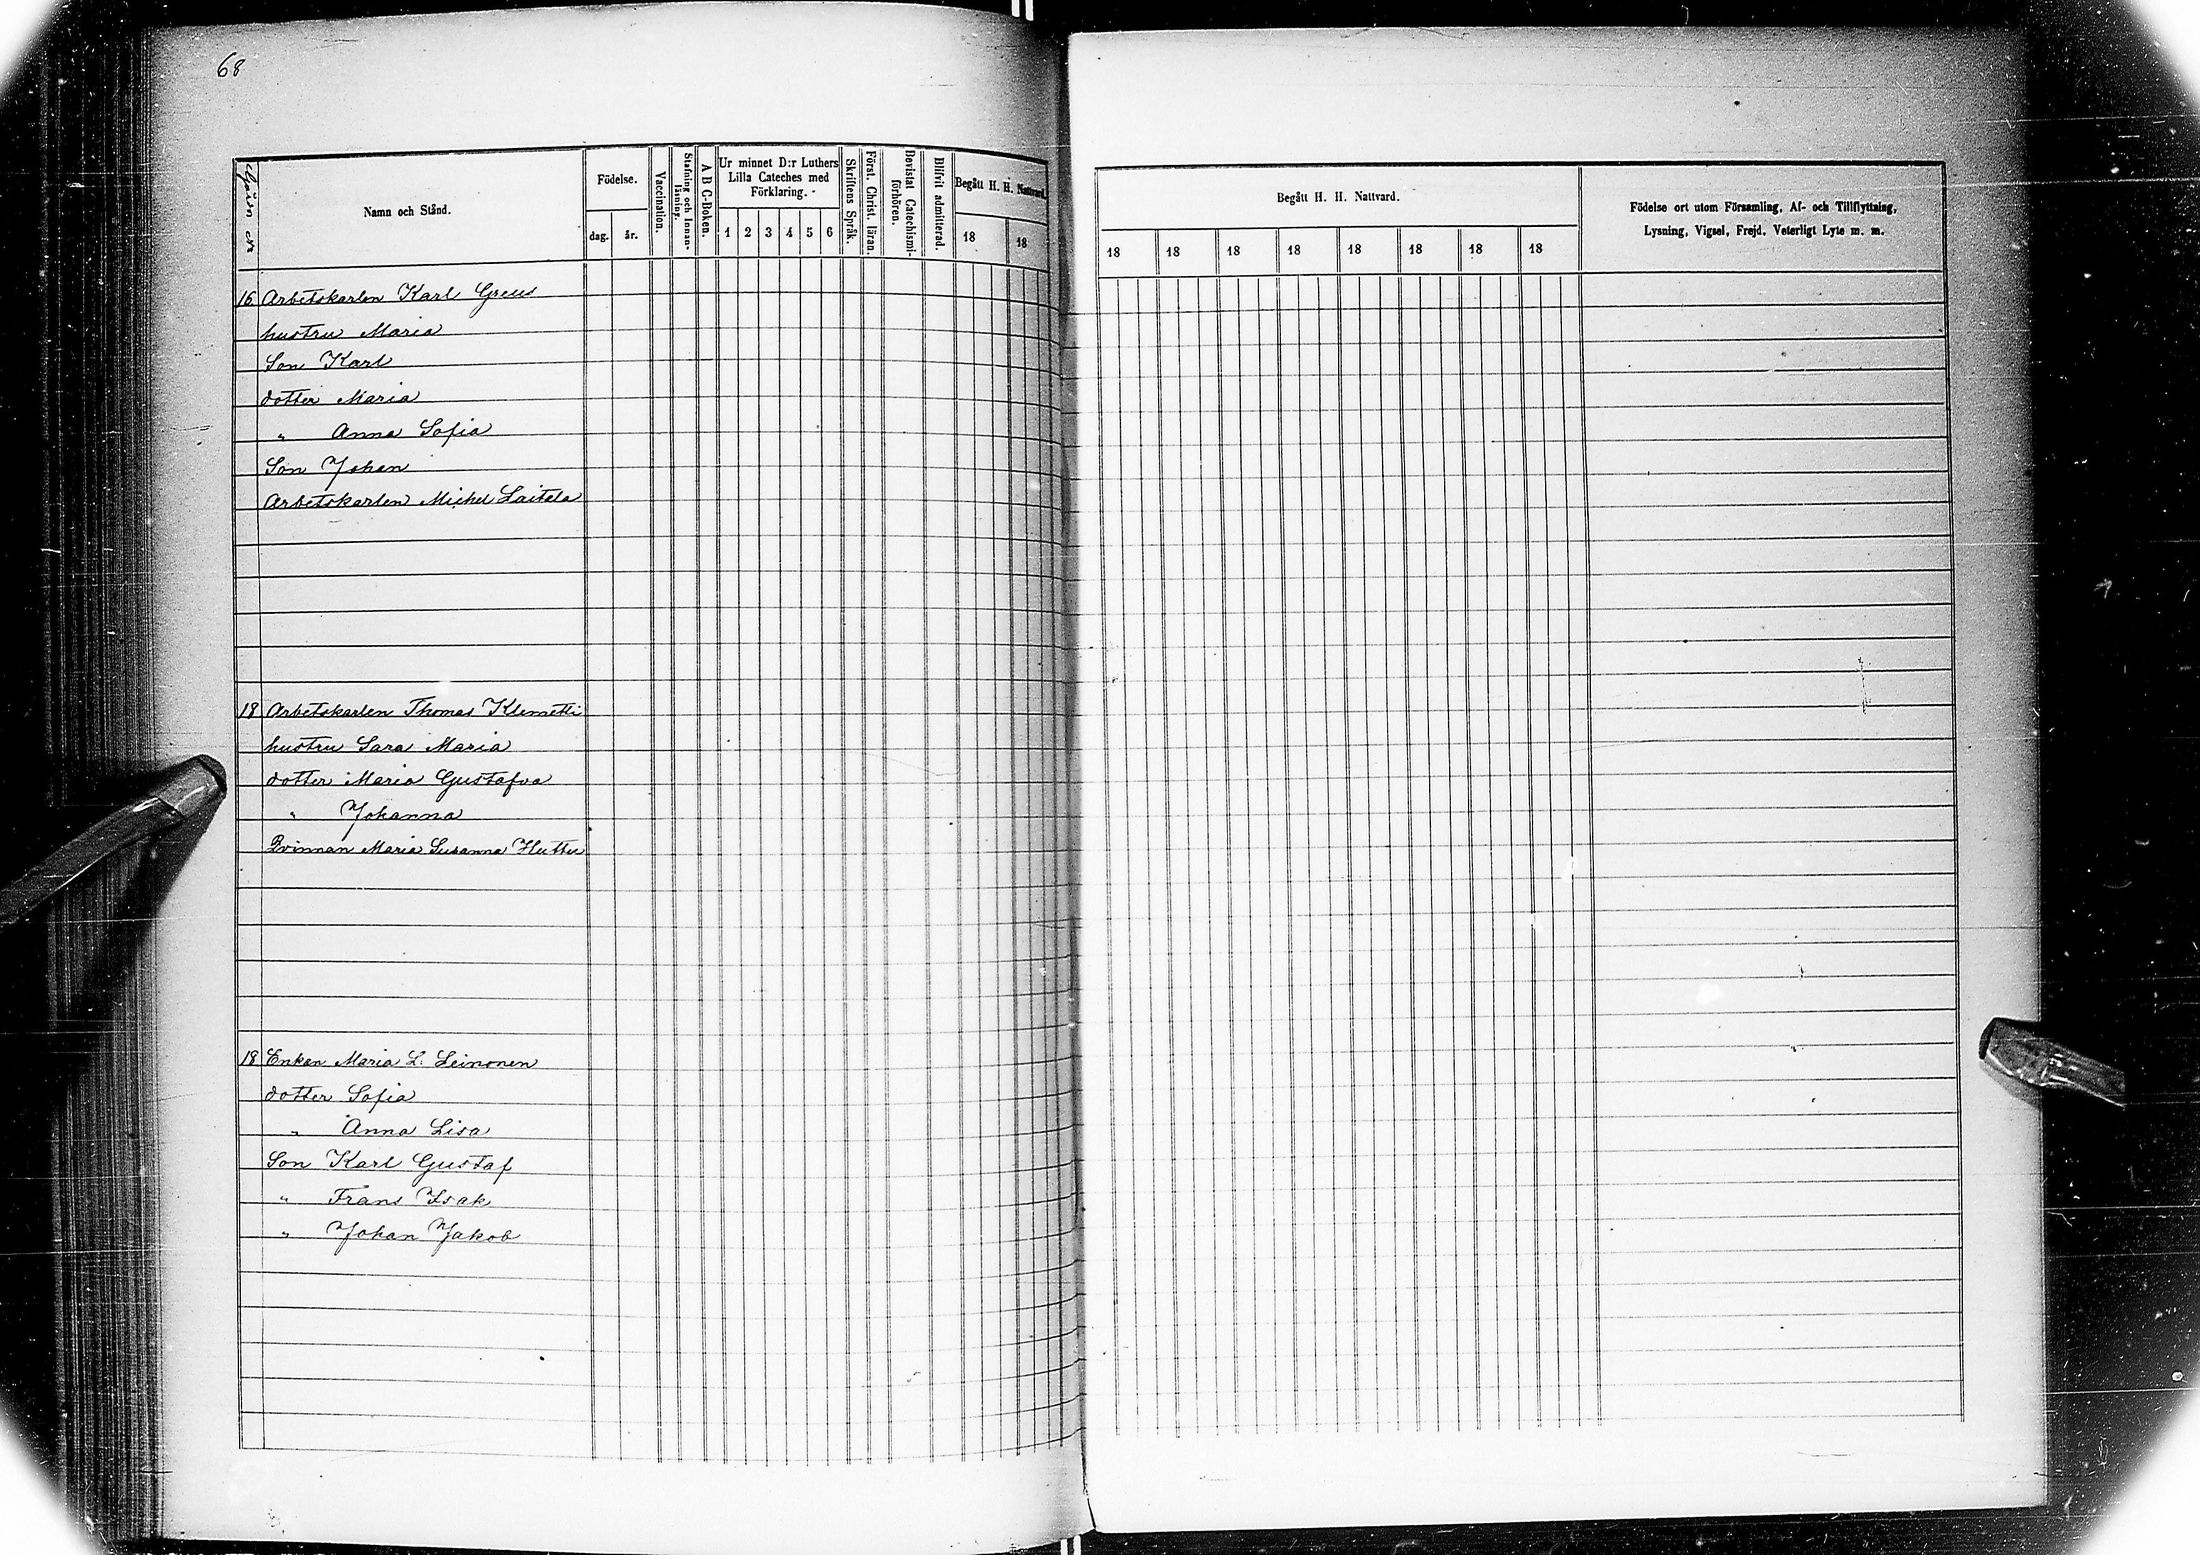 68
Gårn №
Namn och Stånd.
Födelse.
dag.
år.
Vaccination.
Stafning och Innanläsning.
A B C-Boken.
Ur minnet D:r Luthers
Lilla Cateches med
Förklaring.
1 2 3 4 5 6
Skriftens Språk.
Först. Christ. läran.
Bevistat Catechismi-
förhören.
Blifvit admitterad.
Begått H. H. Nattvard.
18 18
Begått H. H. Nattvard.
18 18 18 18 18 18 18 18
Födelse ort utom Församling, Af- och Tillflyttning,
Lysning, Vigsel, Frejd, Veterligt Lyte m. m.
16 Arbetskarlen Karl Greus
hustru Maria
Son Karl
dotter Maria
" Anna Sofia
Son Johan
Arbetskarlen Michel Laitala
18 Arbetskarlen Thomas Klemetti
hustru Sara Maria
dotter Maria Gustafva
" Johanna
Qvinnan Maria Susanna Huttu
18 Enkan Maria L. Leinonen
dotter Sofia
" Anna Lisa
Son Karl Gustaf
" Frans Isak
" Johan Jakob